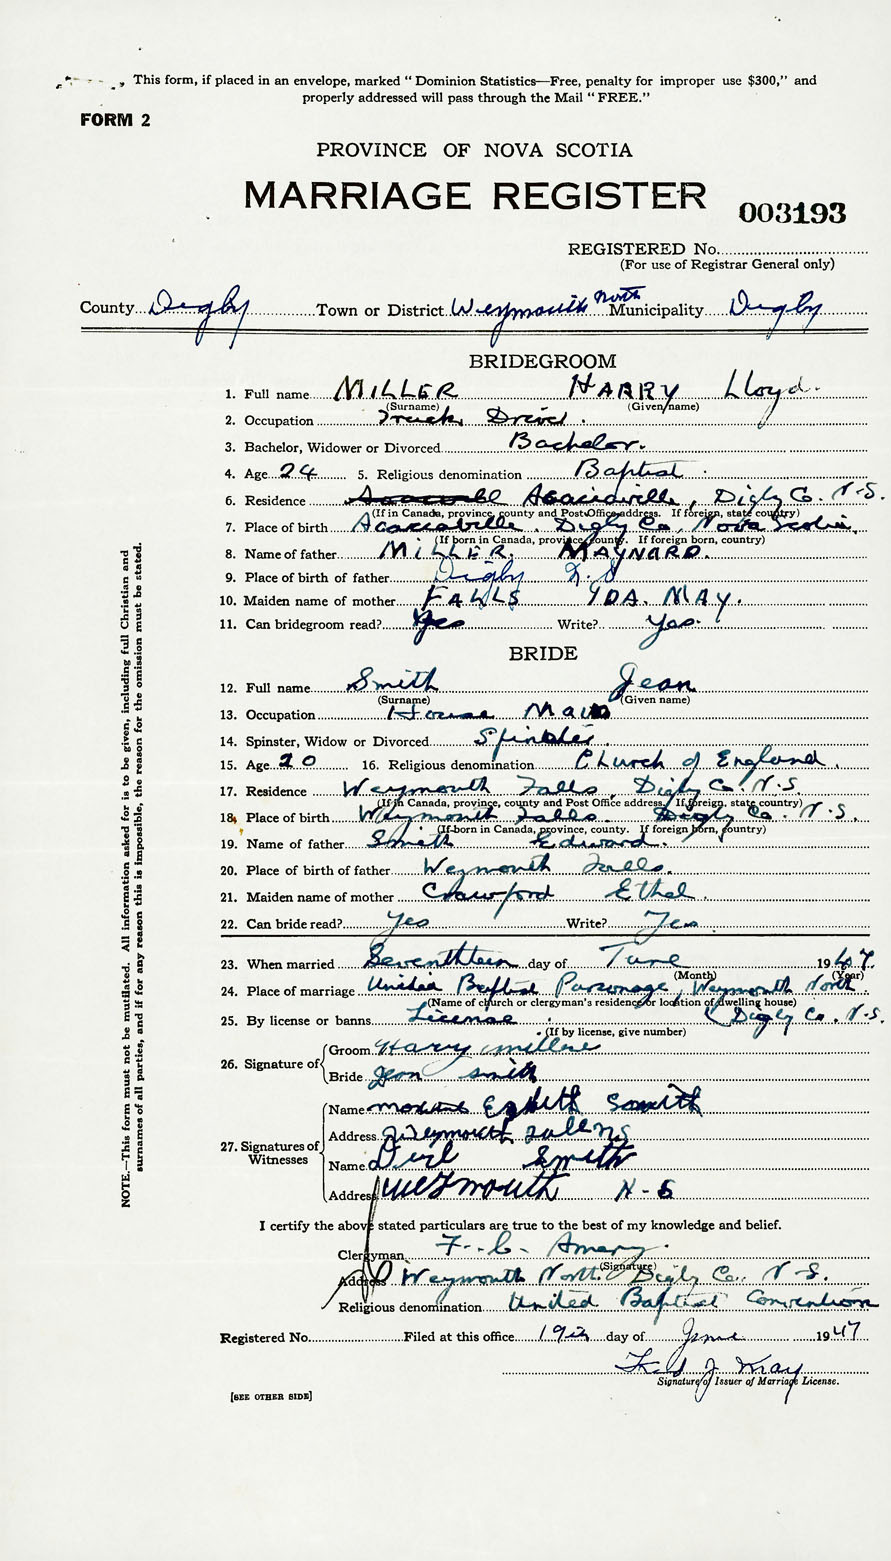 This form, if placed in an envelope, marked "Dominion Statistics—Free, penalty for improper use $300," and
properly addressed will pass through the Mail "FREE."
FORM 2
PROVINCE OF NOVA SCOTIA
MARRIAGE REGISTER
003193
REGISTERED No.
(For use of Registrar General only)
County Digby Town or District Weymouth North Municipality Digby
BRIDEGROOM
1. Full name MILLER HARRY Lloyd.
(Surname) (Given name)
2. Occupation Truck Driver.
3. Bachelor, Widower or Divorced Bachelor.
4. Age 24 5. Religious denomination Baptist.
6. Residence Acaciaville, Digby Co. N.S.
(If in Canada, province, county and Post Office address. If foreign, state country)
7. Place of birth Acaciaville, Digby Co, Nova Scotia.
(If born in Canada, province, county. If foreign born, country)
8. Name of father MILLER. MAYNARD.
9. Place of birth of father Digby N.S
10. Maiden name of mother FALLS IDA. MAY.
11. Can bridegroom read? Yes Write? Yes.
BRIDE
12. Full name Smith Jean
(Surname) (Given name)
13. Occupation House Maid
14. Spinster, Widow or Divorced Spinster.
15. Age 20 16. Religious denomination Church of England.
17. Residence Weymouth Falls, Digby Co. N.S.
(If in Canada, province, county and Post Office address. If foreign, state country)
18. Place of birth Weymouth Falls. Digby Co. N.S.
(If born in Canada, province, county. If foreign born, country)
19. Name of father Smith Edward.
20. Place of birth of father Weymouth Falls.
21. Maiden name of mother Crawford Ethel.
22. Can bride read? Yes Write? Yes.
23. When married Seventeen day of June 1947.
(Month) (Year)
24. Place of marriage United Baptist Parsonage, Weymouth North.
(Name of church or clergyman's residency or location of dwelling house)
25. By license or banns License. (Digby Co. N.S.
(If by license, give number)
26. Signature of
Groom Harry
Bride Jean Smith
27. Signatures of Witnesses
Name Smith
Address Weymouth
Name Smith
Address Weymouth N-S
I certify the above stated particulars are true to the best of my knowledge and belief.
Clergyman F. C. Amery.
(Signature)
Address Weymouth North. Digby Co. N-S.
Religious denomination United Baptist Convention
Registered No. Filed at this office 19th day of June 1947
Signature of Issuer of Marriage License.
[SEE OTHER SIDE]
NOTE.—This form must not be mutilated. All information asked for is to be given, including full Christian and
surnames of all parties, and if for any reason this is impossible, the reason for the omission must be stated.